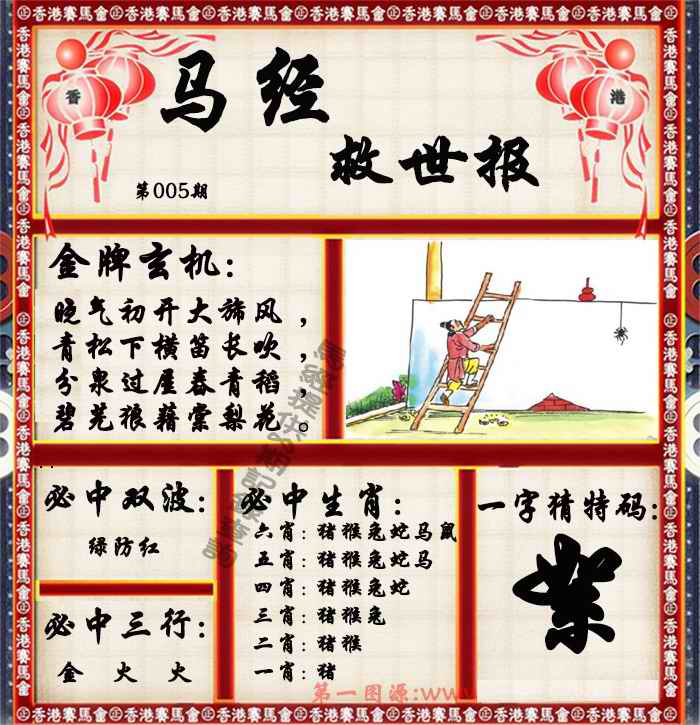 香港賽馬會 香港賽馬會 香港賽馬會 香港賽馬會 香港賽馬會 香港賽馬會
香
港
马经
救世报
第005期
金牌玄机：
晓气初开大旆风，
青松下横笛长吹，
分泉过屋春青稻，
碧芜狼藉棠梨花。
必中双波：
绿防红
必中三行：
金 火 火
必中生肖：
六肖：猪猴兔蛇马鼠
五肖：猪猴兔蛇马
四肖：猪猴兔蛇
三肖：猪猴兔
二肖：猪猴
一肖：猪
一字猜特码：
絮
第一图源:www